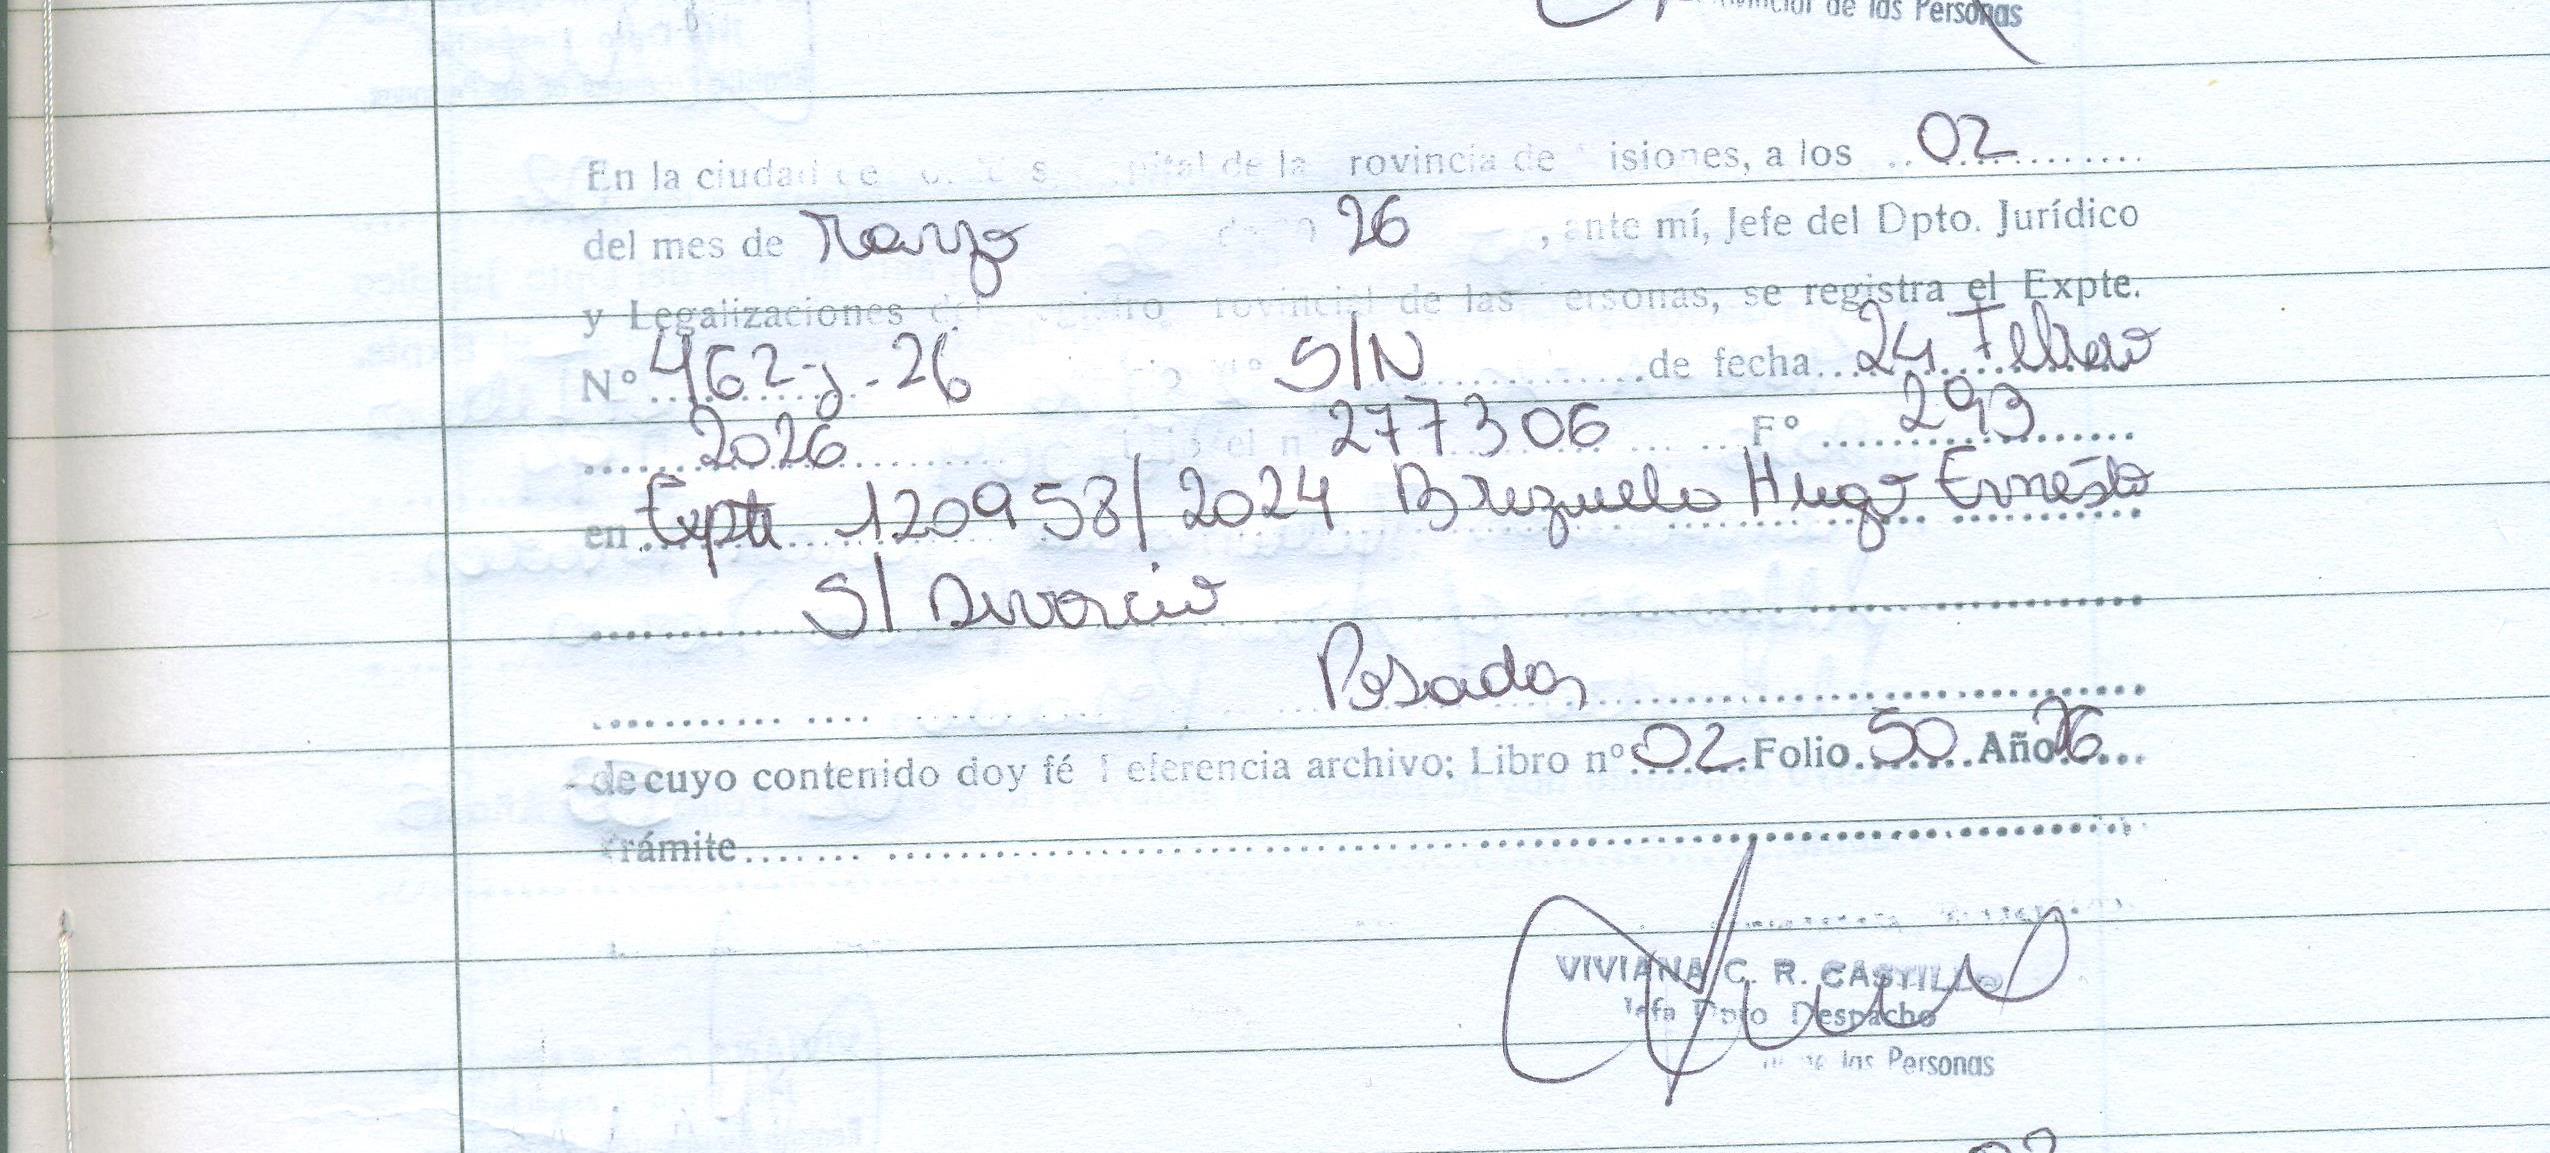 de las Personas
En la ciudad de s, pital de la rovincia de isiones, a los 02
del mes de Marzo de 26, ante mí, Jefe del Dpto. Jurídico
y Legalizaciones del egistro rovincial de las ersonas, se registra el Expte.
N° 462-J-26 S/N de fecha 24 Febrero
2026 277306 F° 293
en Expte 120958/2024 Brezuela Hugo Ernesto
S/ Divorcio
Posadas
de cuyo contenido doy fé eferencia archivo; Libro n° 02 Folio 50 Año 26
trámite
VIVIANA C. R. CASTILLO
Jefa Dpto Despacho
de las Personas
02